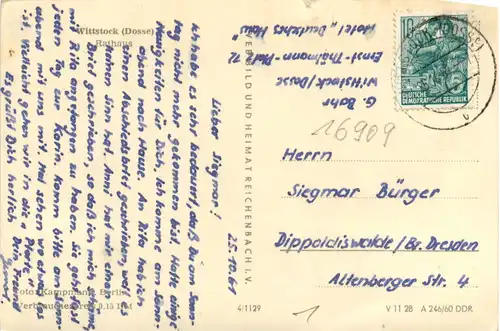 Wittstock (Dosse)
Rathaus
25.10.61
Lieber Siegmar!
Ich habe es sehr bedauert, daß Du am Sonn-
tag nicht mehr gekommen bist. Hatte einige
Neuigkeiten für Dich. Ich komme am Sonn-
abend nach Hause. An Rita habe ich
einen Abschiedsbrief geschrieben,
keinen Sinn hat. Anni hat mir einen
Brief geschrieben, so daß ich mich
mit Rita angefangen zu haben. Sie geht fast
jeden Tag zur Karin. Komm bitte am Sonn-
abend mit uns mit. Mal sehen wo etwas los
ist. Vielleicht gehen wir in die
Es grüßt Dich herlich
Dein Freund
Foto: Kampmann, Berlin
Verbraucherpreis 0,15 DM
BILD UND HEIMAT REICHENBACH I. V.
4/1129
G. Bahr
Wittstock/Dosse
Ernst-Thälmann-Platz 12
Hotel „Deutsches Haus"
10
DEUTSCHE
DEMOKRATISCHE REPUBLIK
16909
Herrn
Siegmar Bürger
Dippoldiswalde/Bz. Dresden
Altenberger Str. 4
1
V 11 28 A 246/60 DDR